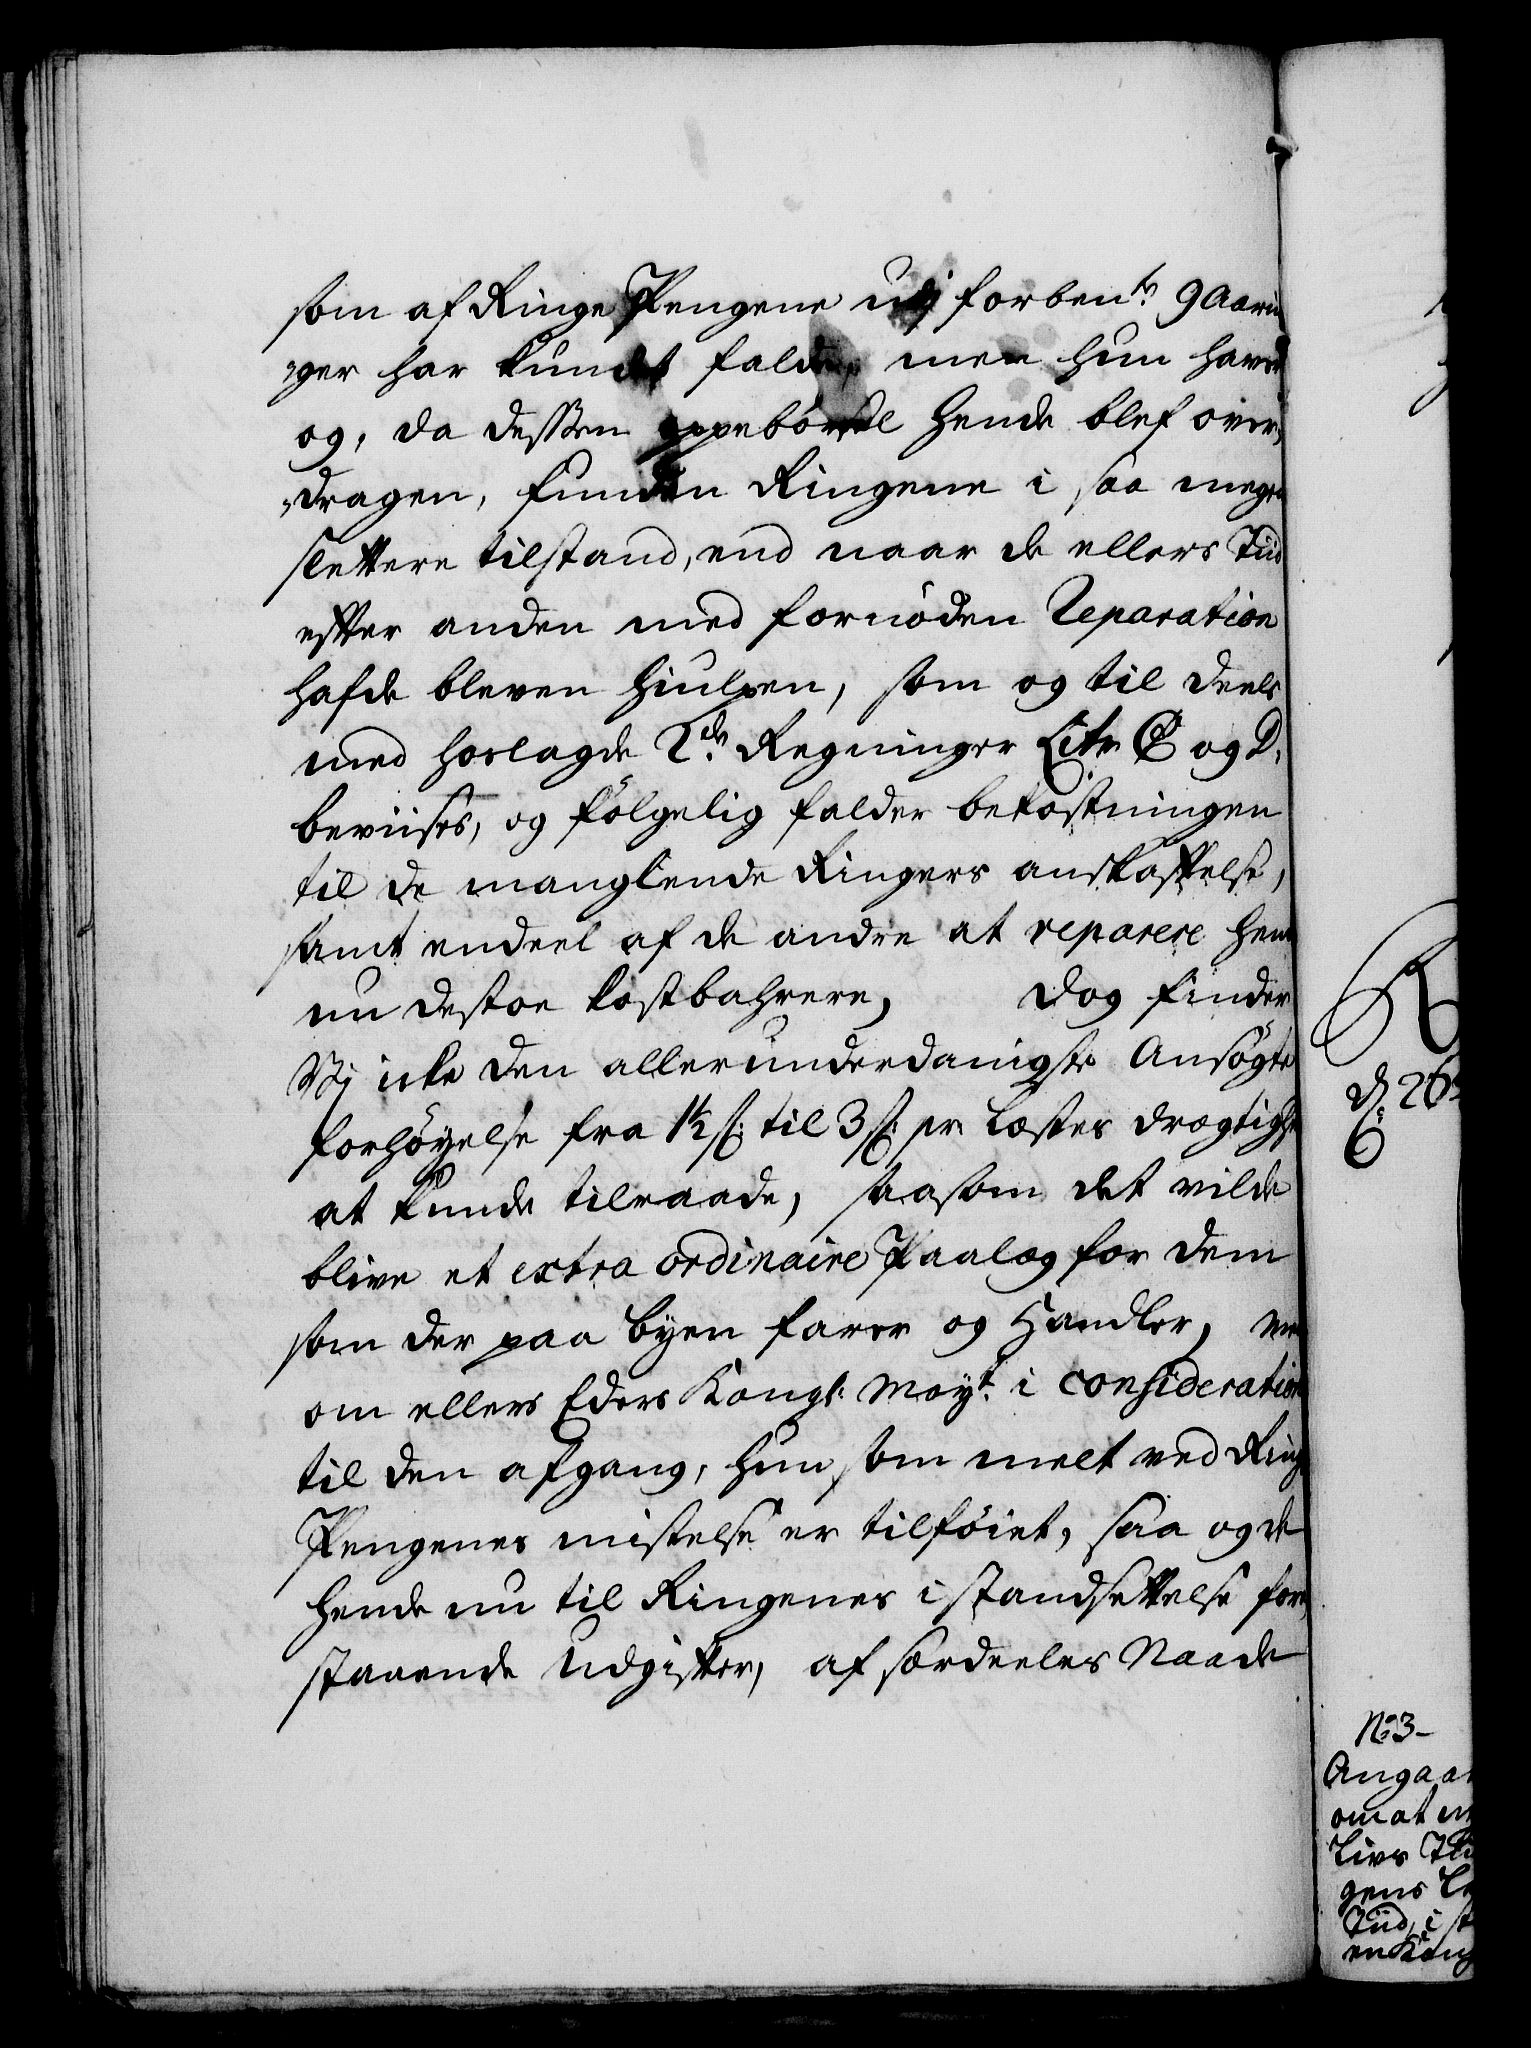 som af Ringe Pengene udj forbente 9 Aarin
ger har kundet falde, men hun havde
og, da dessen oppebörsel hende blef over,
„dragen, funden Ringene i saa megen
slettere tilstand, end naar de ellers Tiid
efter anden med fornöden Reparation
hafde bleven hiulpen, som og til deels
med hoslagde 2de Regninger Litr C og D,
beviises, og fölgelig falder bekostningen
til de manglende Ringers anskaffelse,
samt endeel af de andre at reparere hen
nu destoe kostbahrere, Dog finder
Vj icke den allerunderdanigste Ansögte
forhöyelse fra 1½ ß: til 3 ß: pr Læstes drægtighed
at kunde tilraade, saasom det vilde
blive et extra ordinaire Paalæg for dem
som der paa byen farer og Handler, men
om ellers Eders Kongl: Mayt: i consideration
til den afgang, hun som melt ved Ringe
Pengenes mistelse er tilföiet, saa og de
hende nu til Ringenes istandsettelse fore
staaende Udgifter, af særdeeles Naade
d: 26
No 3
Angaa
om at
Livs
gens
Tiid, i
en Kong